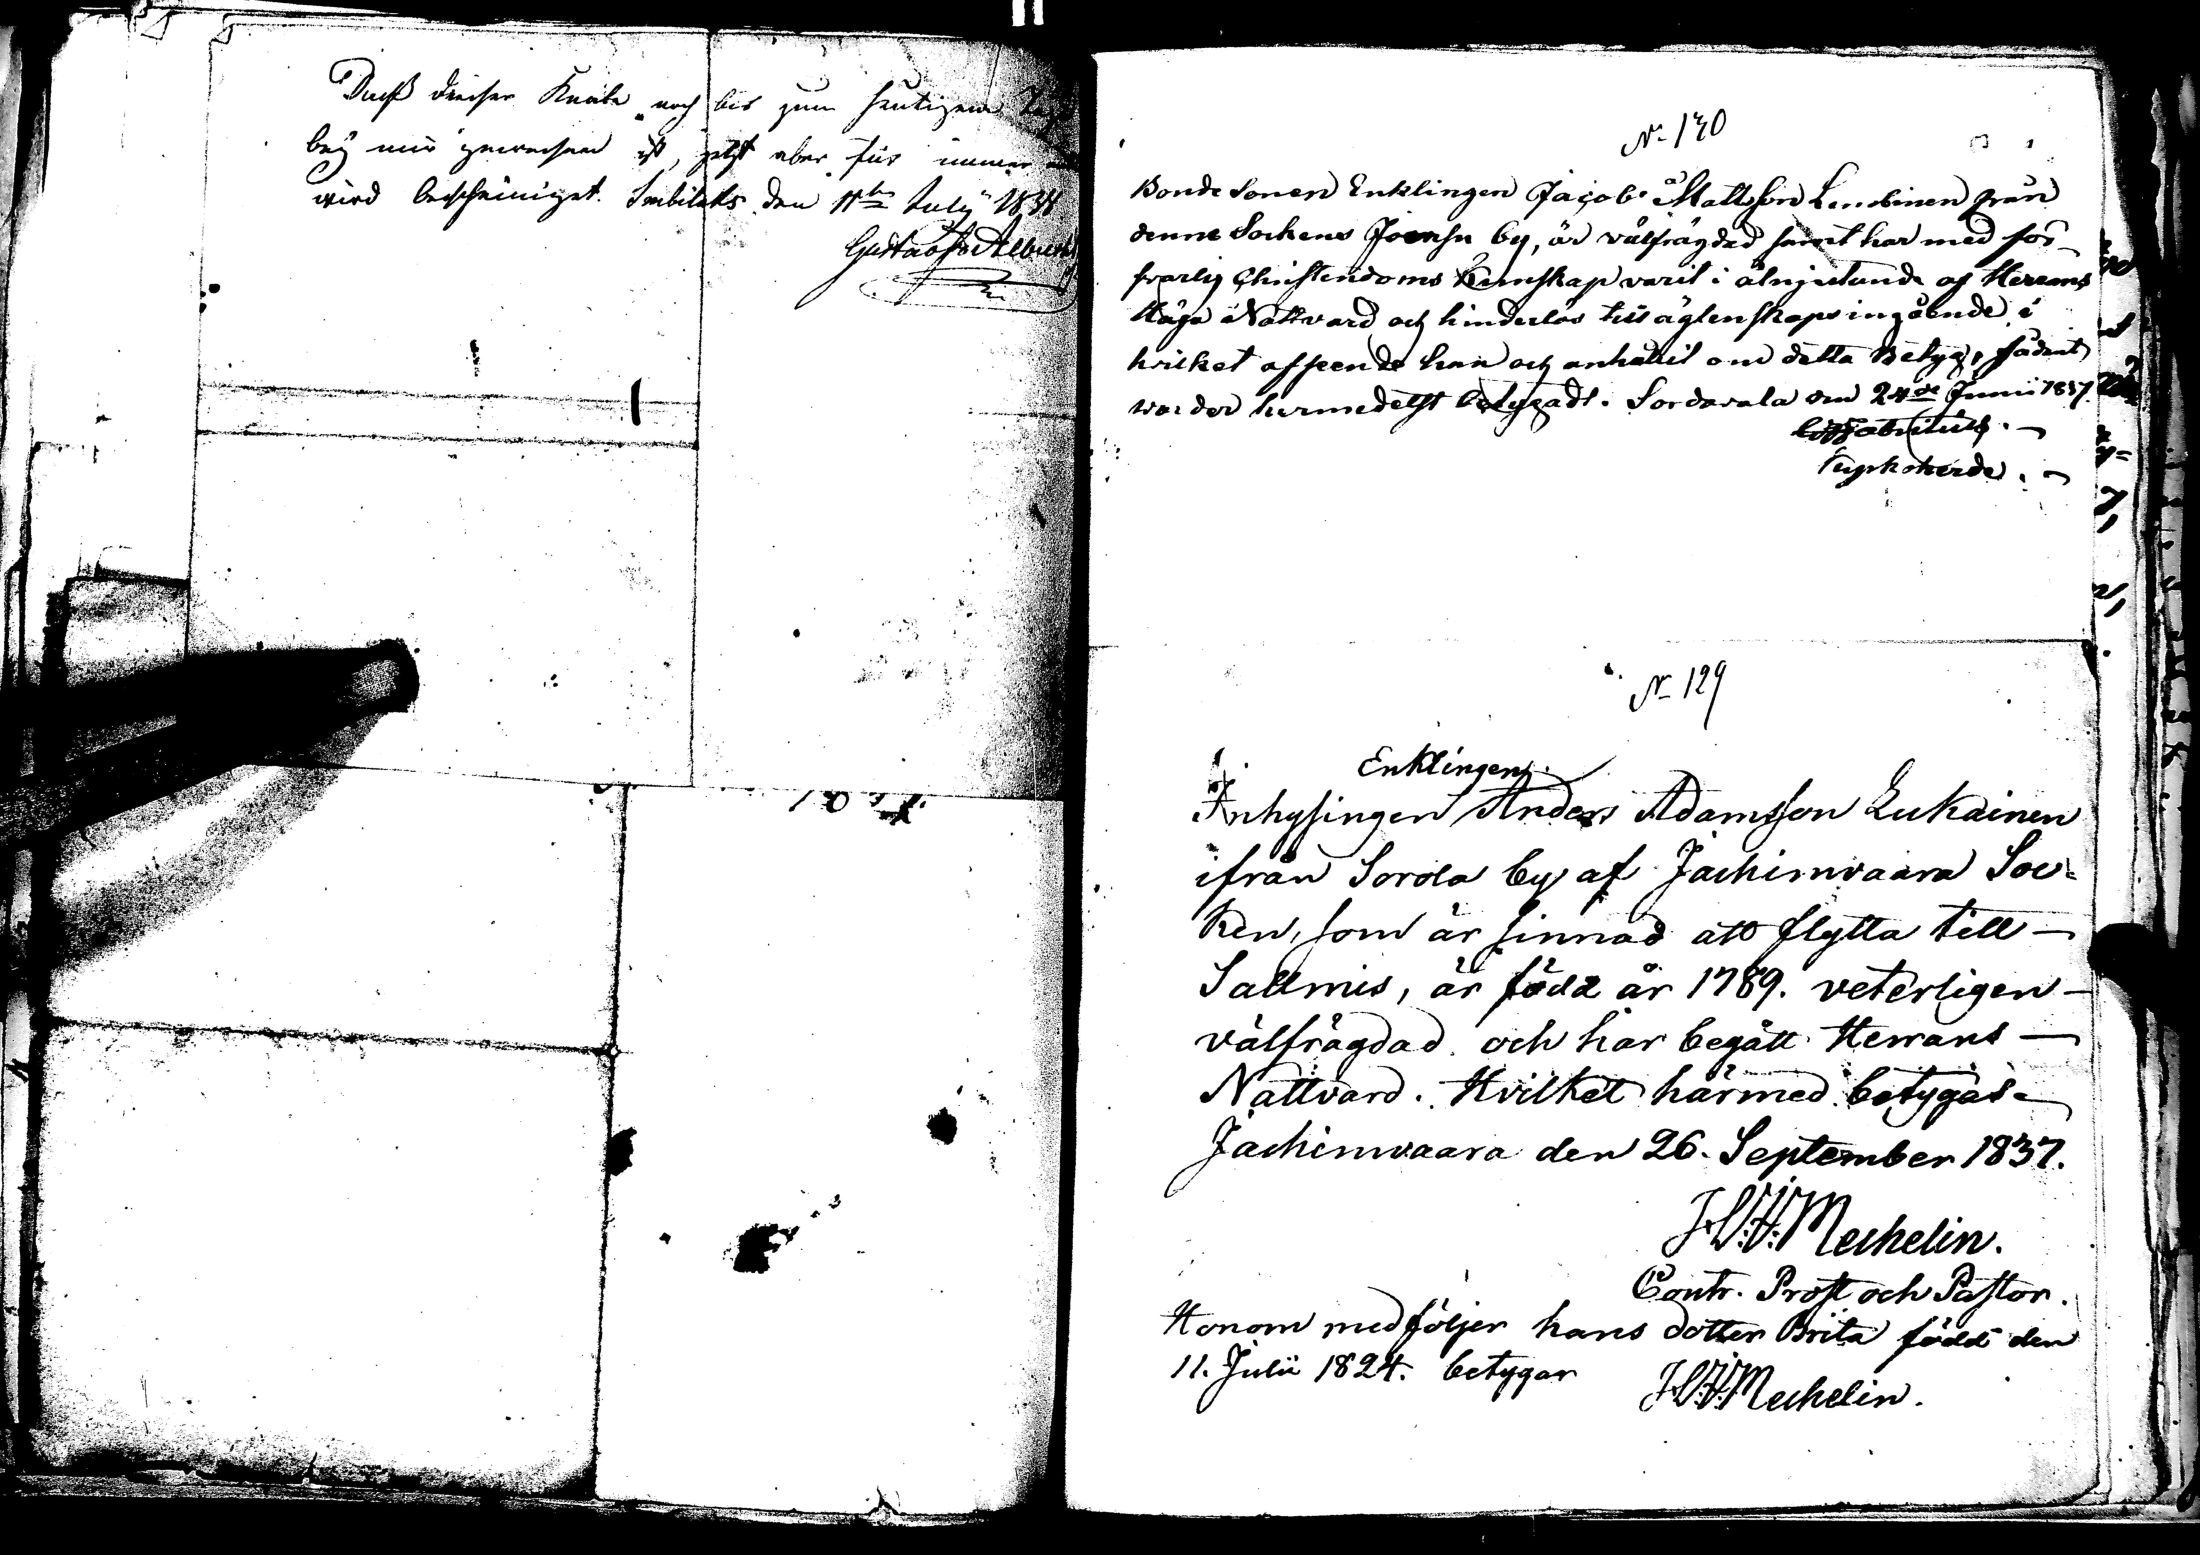 Daß dieser Knabe noch bis zum heutigen
bey mir gewesen ist, jetzt aber für immer
wird bescheiniget. den 11ten July 1838
Gustaf
N. 130
Bonde Sonen Enklingen Jacob Mattsson från
denne Sockens Joensu by, är välfrägdad samt har med för-
svarlig Christendoms Kunskap varit i åtnjutande af Herrans
Höga Nattvard och hinderlös till ägtenskaps ingående i
hvilket afseende han och anhållit om detta Betyg, sådant
warder hermedelst betygadt. Sordavala den 24de Junii 1837.
Kyrkoherde.
N. 129
Enklingen
Inhysingen Anders Adamsson Lukainen
ifrån Sorola by af Jachimvaara Soc-
ken, som är sinnad att flytta till
Sallmis, är född år 1789. veterligen
välfrägdad och har begått Herrans
Nattvard. Hvilket härmed betygas.
Jachimvaara den 26. September 1837.
Mechelin.
Contr. Prost och Pastor.
Honom medföljer hans dotter Brita född den
11. Julii 1824. betygar
Mechelin.